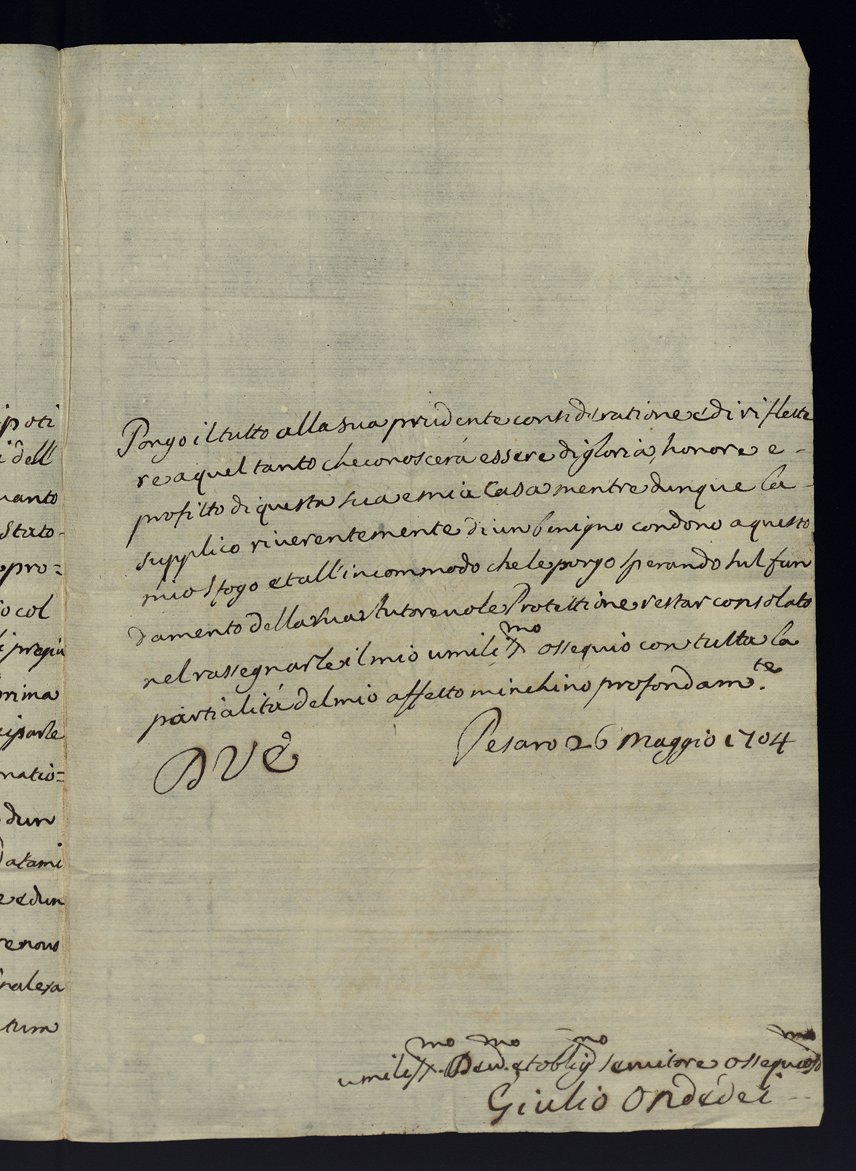 ipoti
i dell
uanto
stato-
pro=
io col
prima
ciparle
natio=
dun
Datami
e e dun
re nono
tum
Porgo il tutto alla sua prudente consideratione e di riflette
re a quel tanto che conoscerá essere di gloria, honore e -
profitto di questa sua e mia Casa mentre dunque la -
supplico riverentemente di un benigno condono a questo
mio sfogo et all'incommodo che le porgo sperando sul fun
damento della sua Autorevole Protettione restar consolato
nel rassegnarle il mio umiliss.mo ossequio con tutta la
partialitá del mio affetto m'inchino profondam.te
D V E
Pesaro 26 Maggio 1704
umiliss.mo Dev.mo et oblig.mo servitore ossequios.mo
Giulio Ondédei --